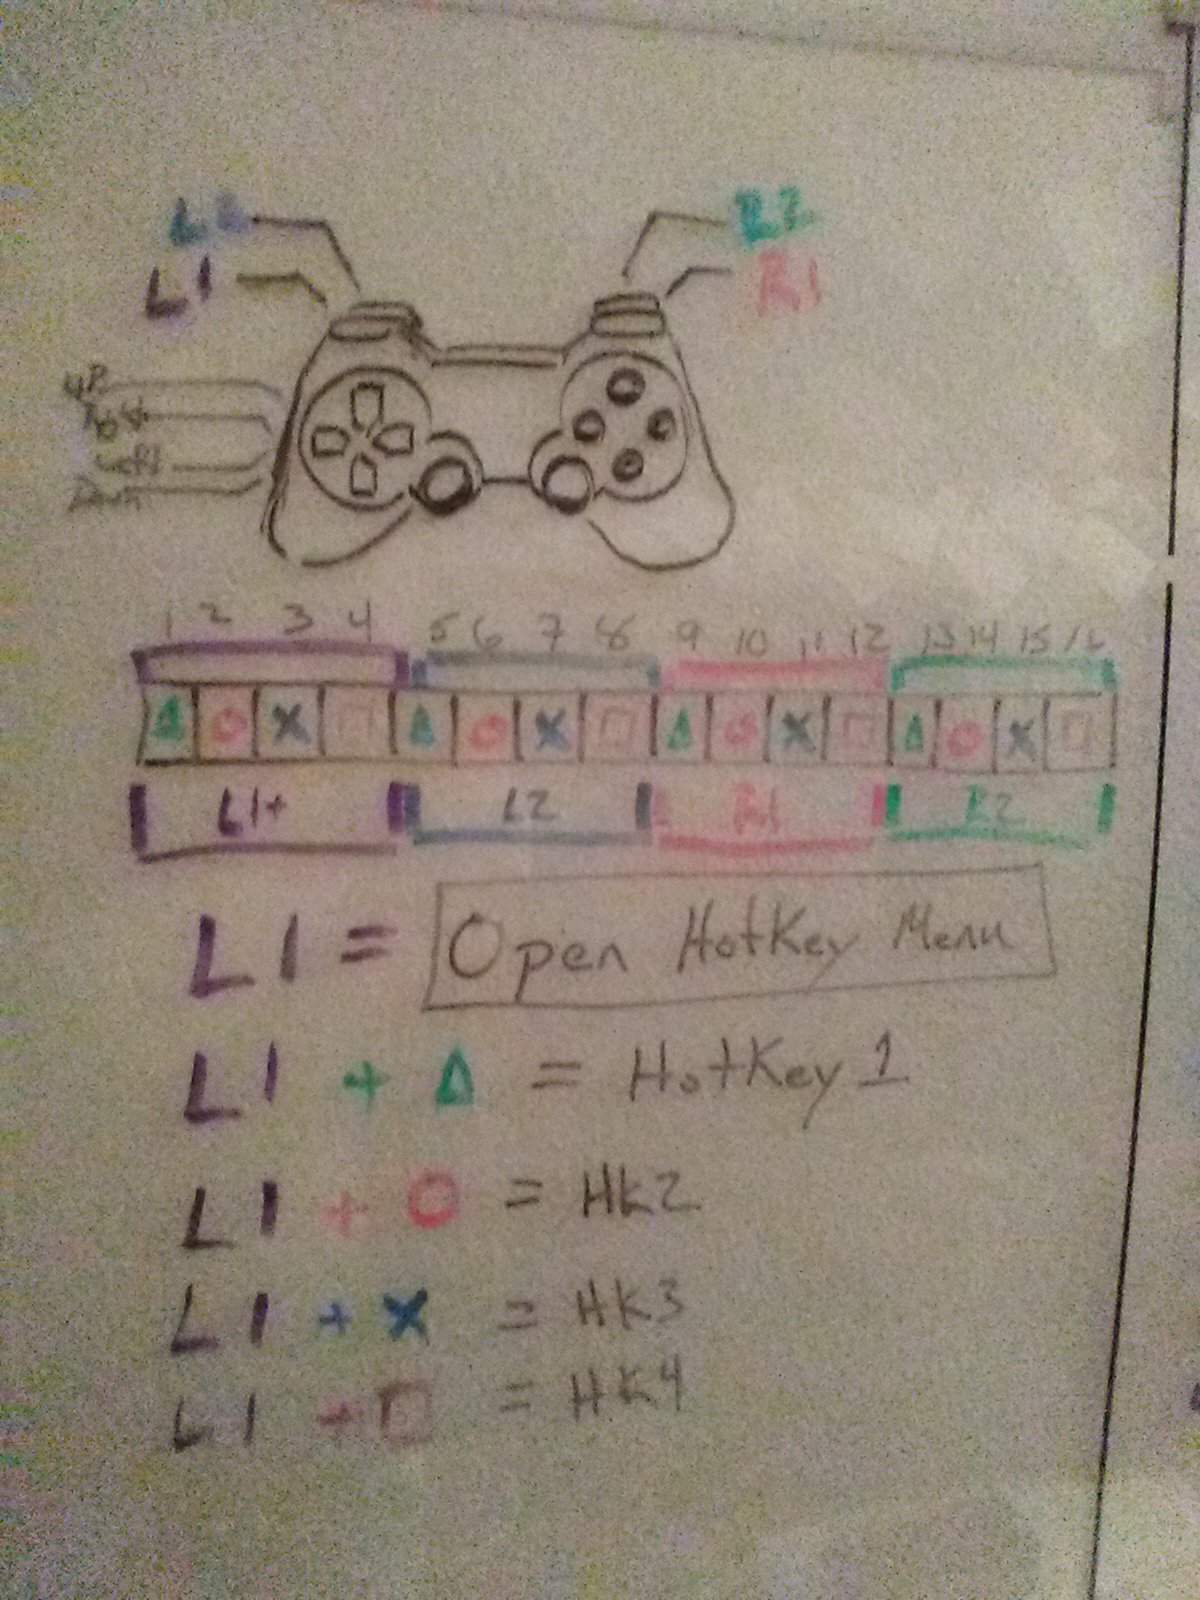 L2 R2
L1 R1
UP
Left
Down
1 2 3 4 5 6 7 8 9 10 11 12 13 14 15 16
△ ○ X □ △ ○ X □ △ ○ X □ △ ○ X □
L1+ L2 R1 R2
L1 = Open HotKey Menu
L1 + △ = HotKey 1
L1 + ○ = HK2
L1 + X = HK3
L1 + □ = HK4